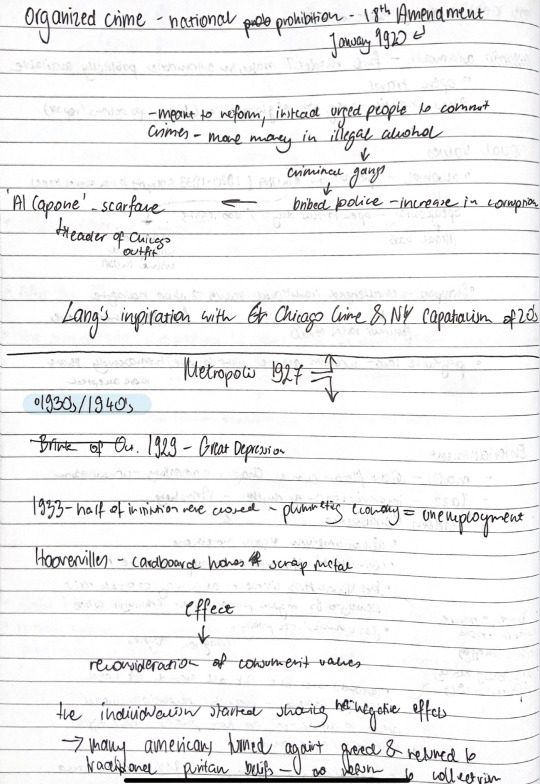 Organized crime - national prohibition - 18th Amendment
January 1920
- meant to reform, instead urged people to commit
crimes - more money in illegal alcohol
criminal gangs
'Al Capone' - scarface ← bribed police - increase in corruption
leader of Chicago
outfit
Lang's inpiration with Chicago Crime & NY Capatalism of 20s
Metropolis 1927
1930s/1940s
Brink of Oct. 1929 - Great Depression
1933 - half of were closed - plummeting economy = unemployment
Hoovervilles - cardboard homes & scrap metal
effect
↓
reconsideration of consumerist values
the individualism started showing negative effects
→ many americans turned against greed & returned to
traditional puritan beliefs - return to collectivism